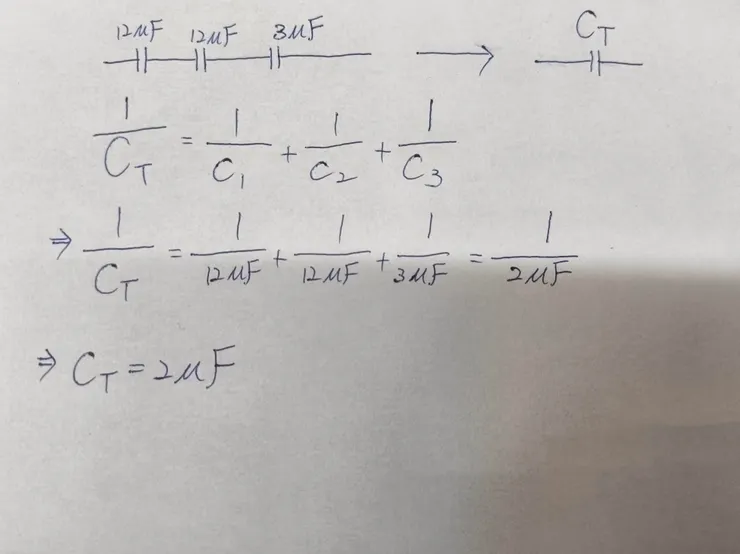 12μF 12μF 3μF → C_T
1/C_T = 1/C_1 + 1/C_2 + 1/C_3
⇒ 1/C_T = 1/12μF + 1/12μF + 1/3μF = 1/2μF
⇒ C_T = 2μF